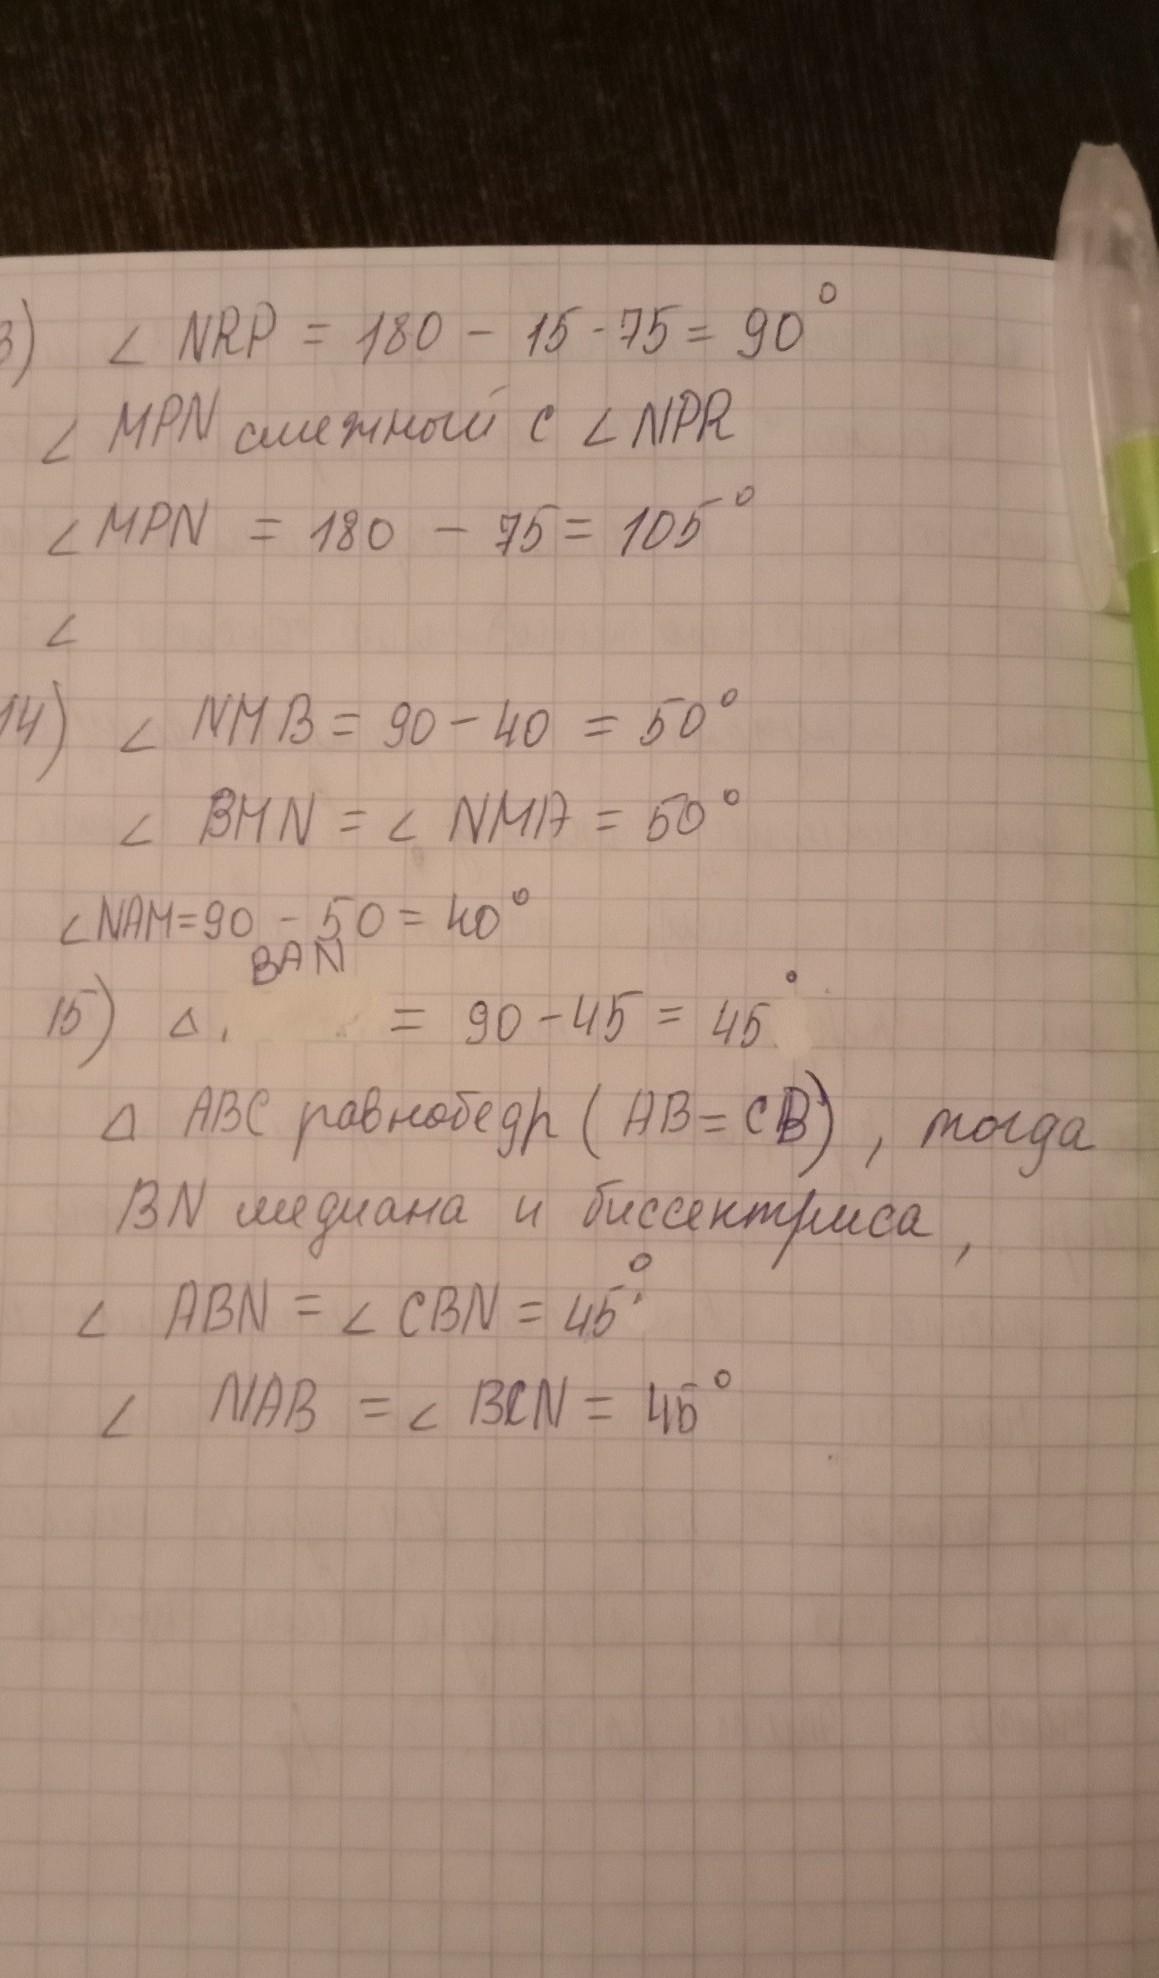 3) ∠ NRP = 180 - 15 - 75 = 90°
∠ MPN смежный с ∠ NPR
∠ MPN = 180 - 75 = 105°
∠
14) ∠ NMB = 90 - 40 = 50°
∠ BMN = ∠ NMA = 50°
∠NAM = 90 - 50 = 40°
BAN
15) Δ. = 90 - 45 = 45°
Δ ABC равнобедр (AB = CB), тогда
BN медиана и биссентриса,
∠ ABN = ∠ CBN = 45°
∠ NAB = ∠ BCN = 45°